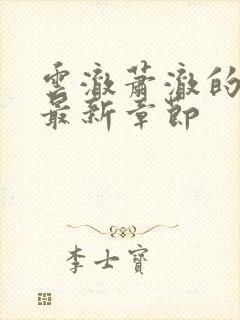 雲澈蕭澈的
最新章節
李士寶